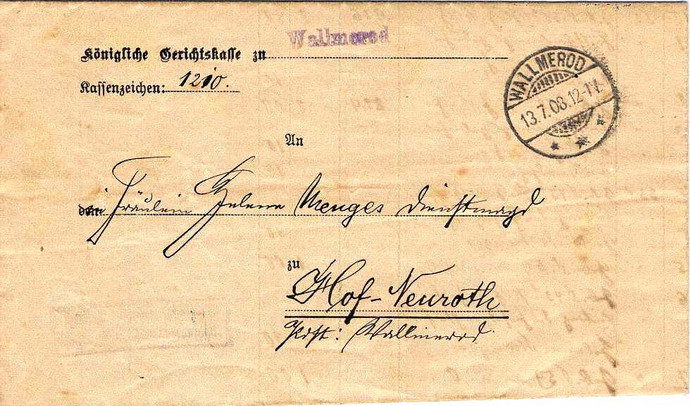 Königliche Gerichtskasse zu Wallmerod
Kassenzeichen: 1210.
WALLMEROD
13.7.08.12-1V.
An
Fräulein Helena Menges Dienstmagd
zu
Hof-Neuroth
Post: Wallmerod.